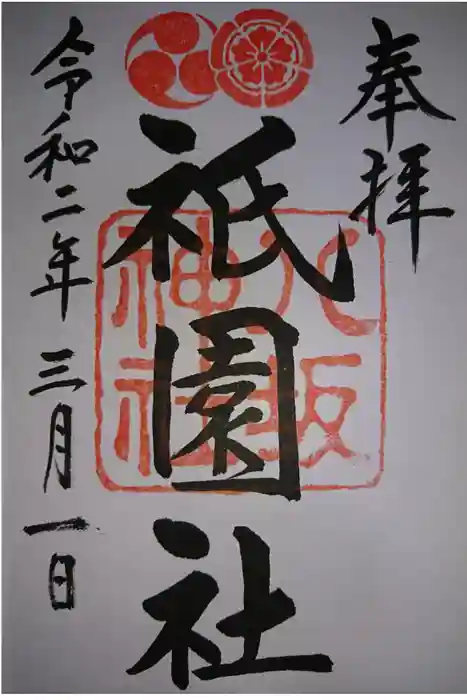 奉拝
祇園社
八坂
神社
令和二年 三月一日